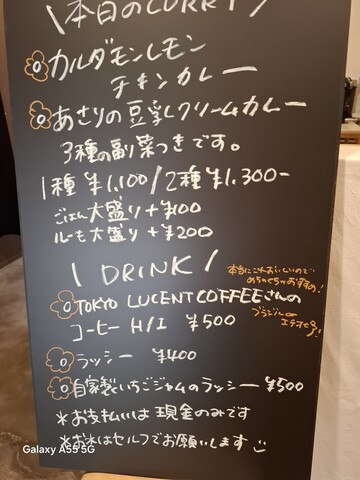 \ 本日のCURRY /
カルダモンレモン
チキンカレー
あさりの豆乳クリームカレー
3種の副菜つきです。
1種 ¥1,100/2種 ¥1,300-
ごはん大盛り+¥100
ルーも大盛り+¥200
\ DRINK /
本当にこれおいしいので
めちゃくちゃおすすめ!
TOKYO LUCENT COFFEEさんの
コーヒー H/I ¥500
ブラジル or
エチオピア
ラッシー ¥400
自家製いちごジャムのラッシー ¥500
*お支払いは現金のみです
*お水はセルフでお願いします
Galaxy A55 5G